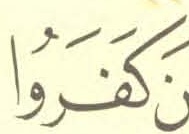 نَ كَفَرُوا